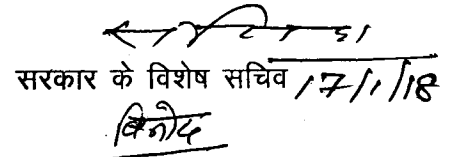 सरकार के विशेष सचिव 17/1/18
विनोद